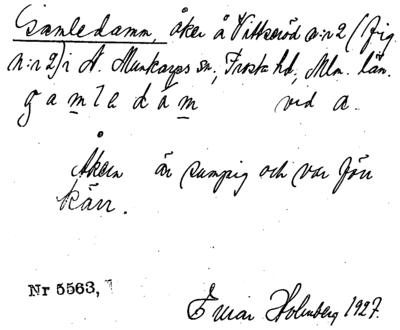 Gamledamm, åker å Vittseröd n:r 2 (fig.
n:r 2) i Ö. Munkarps sn, Frosta hd, Mlm. län.
gamledám vid a.
Åkern är sumpig och var förr
kärr.
Nr 5563,
Einar Holmberg 1927.